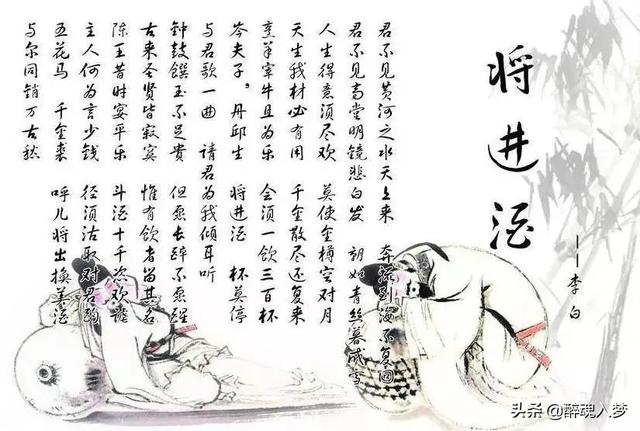 将进酒
——李白
君不见黄河之水天上来 奔流到海不复回
君不见高堂明镜悲白发 朝如青丝暮成雪
人生得意须尽欢 莫使金樽空对月
天生我材必有用 千金散尽还复来
烹羊宰牛且为乐 会须一饮三百杯
岑夫子。丹邱生 将进酒 杯莫停
与君歌一曲 请君为我倾耳听
钟鼓馔玉不足贵 但愿长醉不愿醒
古来圣贤皆寂寞 惟有饮者留其名
陈王昔时宴平乐 斗酒十千恣欢谑
主人何为言少钱 径须沽取对君酌
五花马 千金裘 呼儿将出换美酒
与尔同销万古愁
头条 @醉魂入梦